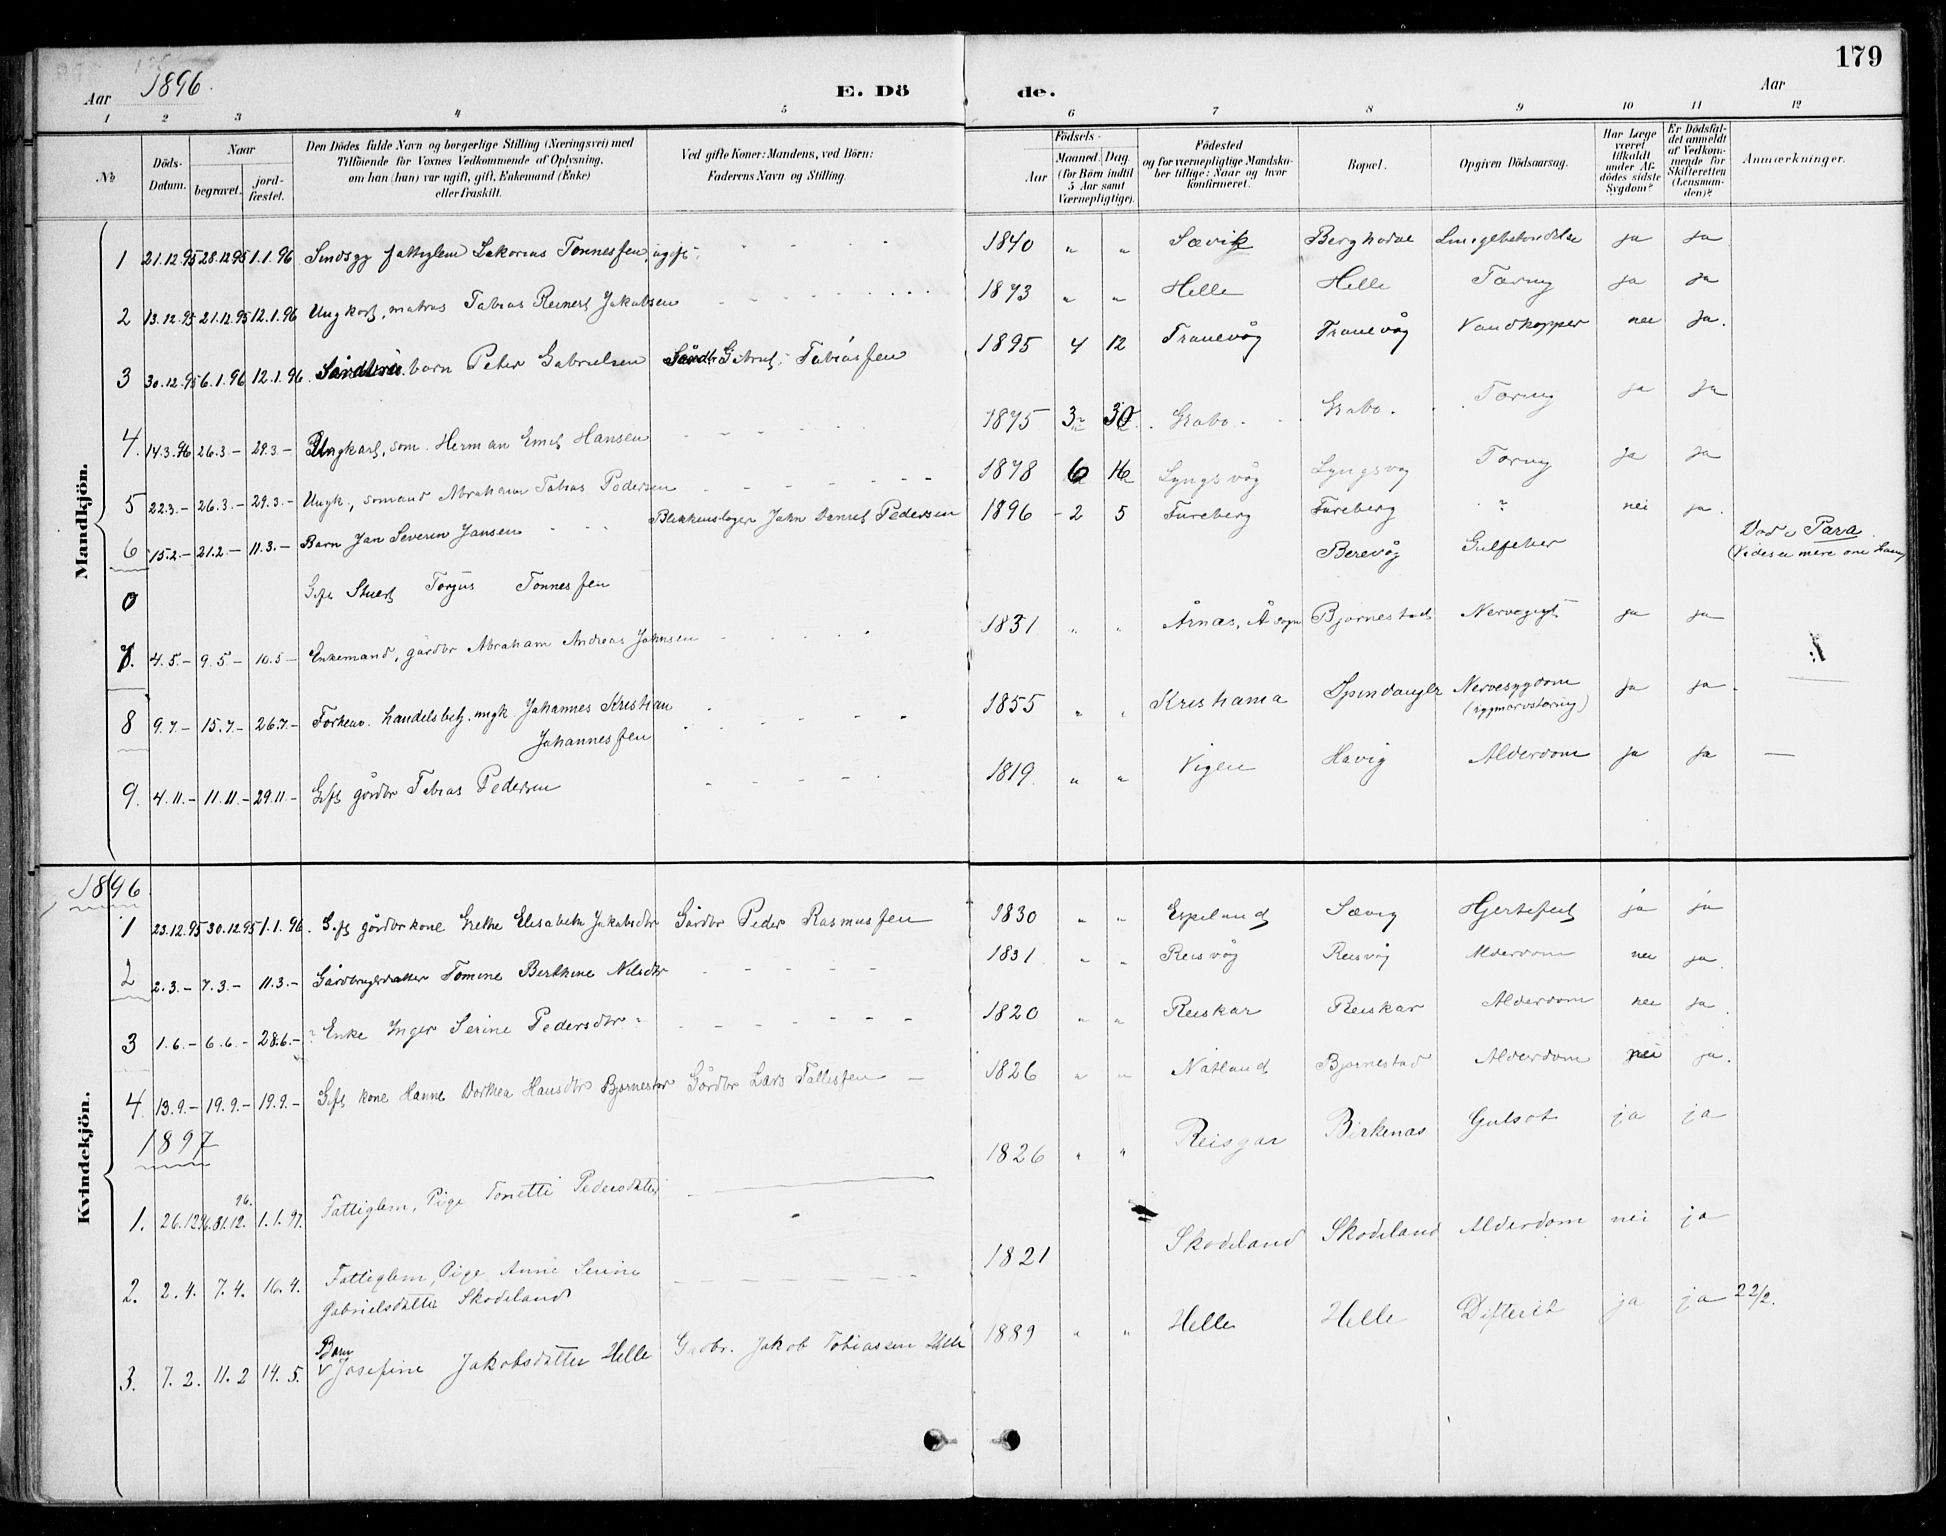 179
Aar 1896.
E. Dö de.
Aar
1 2 3 4 5 6 7 8 9 10 11 12
No
Döds-Datum.
Naar
begravet.
jordfæstet.
Den Dödes fulde Navn og borgerlige Stilling (Næringsvei) med
Tilföiende for Voxnes Vedkommende af Oplysning,
om han (hun) var ugift, gift, Enkemand (Enke)
eller fraskilt.
Ved gifte Koner: Mandens, ved Börn:
Faderens Navn og Stilling.
Födsels-
Aar
Maaned. Dag.
(for Börn indtil 5 Aar samt Værnepligtige).
Födested
og for værnepligtige Mandskaber tillige: Naar og hvor konfirmeret.
Bopæl.
Opgiven Dödsaarsag.
Har Læge været tilkaldt under Afdödes sidste Sygdom?
Er Dödsfaldet anmeldt af Vedkommende for Skifteretten (Lensmanden)?
Anmærkninger.
Mandkjön.
1 21.12.95 28.12.95 1.1.96 Sindsyg fattiglem Sakarias Tønnessen, ugift. 1840 " " Sævik ja ja
2 13.12.95 21.12.95 12.1.96 Ungkarl, matros Tobias Reinert Jakobsen 1873 " " Helle Helle Tæring ja ja
3 30.12.95 6.1.96 12.1.96 barn Peter Gabrielsen Tobiassen 1895 4 12 Tranevåg Tranevåg Vandkopper nei ja.
4. 14.3.96 26.3- 29.3- Ungkarl, søm. Herman Emil Hansen 1875 3 30 Grabo. Grabo. Tæring ja ja
5 22.3.- 26.3.- 29.3- Ungk., sømand Abraham Tobias Pedersen 1878 6 16 Lyngsvåg Lyngsvåg Tæring ja ja
6 15.2.- 21.2.- 11.3.- Barn Jan Severin Jansen Blikkenslager Jahn Daniel Pedersen 1896 2 5 Fureberg Fureberg ? nei ja.
0 Gift Stuert Torjus Tønnessen Berevåg Gulfeber Død i Para.
(Vides ei mere om ham)
7. 4.5.- 9.5- 10.5- Enkemand, gårdbr Abraham Andreas Jahnsen 1831 " " Årnæs, Å sogn Bjørnestad Nervegigt ja ja
8 9.7.- 15.7.- 26.7.- Forhenv. handelsbetj. ungk. Johannes Kristian
Johannessen 1855 " " Kristiania Spindanger Nervesygdom
(rygmarvstæring) ja ja
9. 4.11.- 11.11.- 29.11- Gift gårdbr Tobias Pedersen 1819 " " Vigen Høvig Alderdom ja ja
Kvindekjön.
1896
1 23.12.95 30.12.95 1.1.96. Gift gårdbrkone Grethe Elisabeth Jakobsdtr Gårdbr Peder Rasmussen 1830 " " Espeland Sævig Hjertefeil ja ja
2 2.3.- 7.3.- 11.3.- Gårdbrugerdatter Tomine Berthine Nilsdtr 1831 " " Reisvåg Reisvåg Alderdom nei ja.
3 1.6.- 6.6.- 28.6.- Enke Inger Serine Pedersdtr 1820 " " Reiskar Reiskar Alderdom nei ja.
4. 13.9.- 19.9.- 19.9.- Gift kone Hanne Dorthea Hansdtr Bjørnestad Gårdbr Lars Tallessen 1826 " " Nåtland Bjørnestad Alderdom nei ja.
1897
1. 26.12.96. 31.12.96. 1.1.97. Fattiglem, Pige Tonette Pedersdatter 1826 " " Reisgar Birkenæs Gulsot ja ja
2. 2.4. 7.4. 16.4. Fattiglem, Pige Anne Serine
Gabrielsdatter Skodeland 1821 Skodeland Skodeland Alderdom nei ja
3. 7.2. 11.2 14.5. Barn
Josefine Jakobsdatter Helle Gadbr. Jakob Tobiassen Helle 1889 " " Helle Helle Difterit ja ja 22/2.